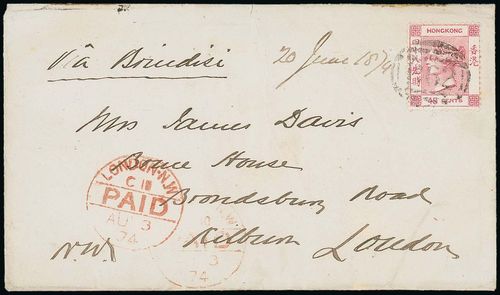 Viâ Brindisi
20 June 1874
HONGKONG
香港
48 CENTS
Mrs James Davis
House
Brondsbury Road
Kilburn London
N.W.
LONDON.N.W
C 11
PAID
AU 3
74
N.W
3
74